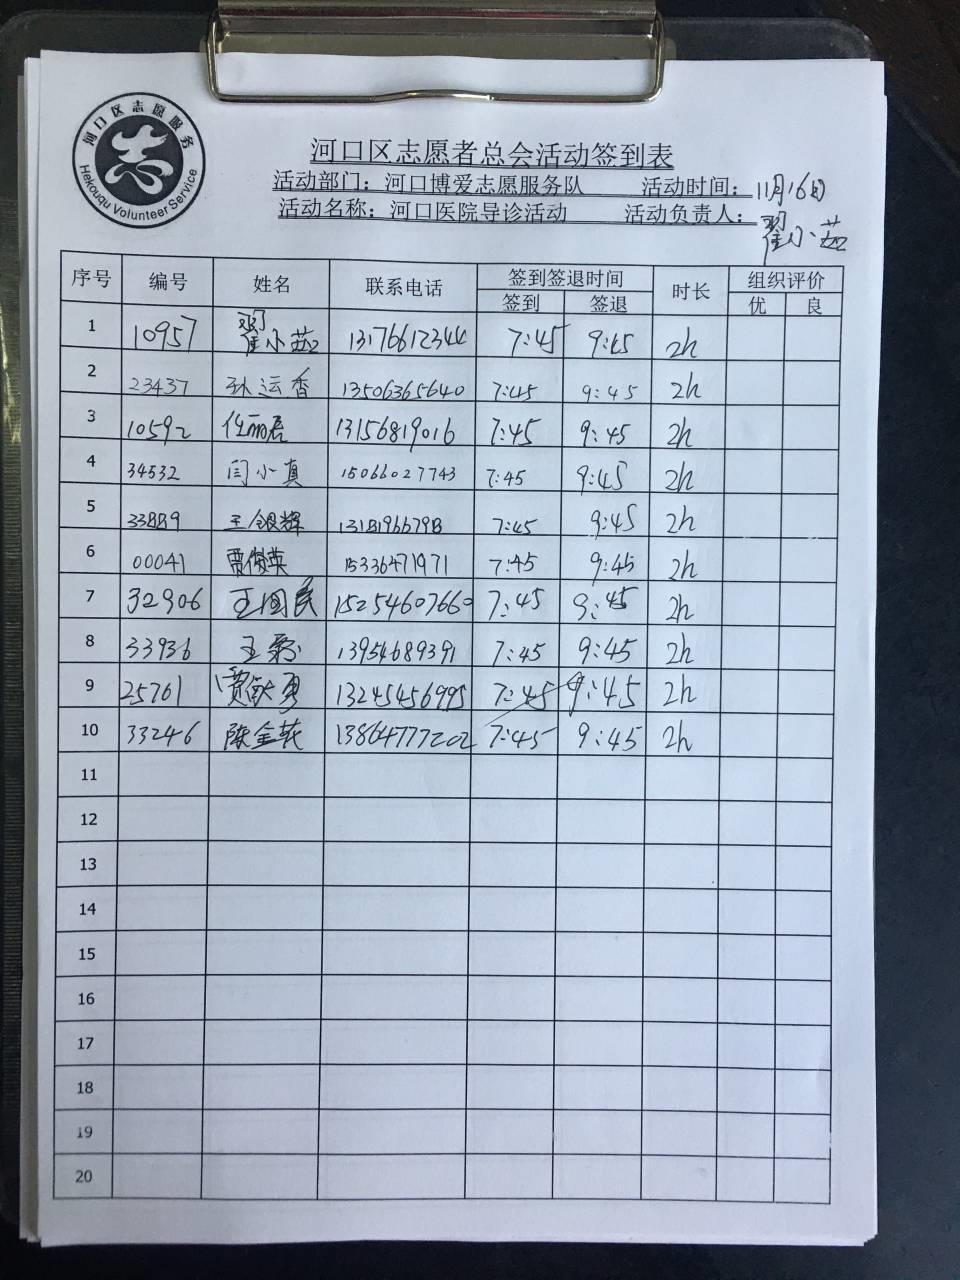 河口区志愿服务
志
Hekouqu Volunteer Service
河口区志愿者总会活动签到表
活动部门：河口博爱志愿服务队 活动时间：11月16日
活动名称：河口医院导诊活动 活动负责人：翟小茹
序号 编号 姓名 联系电话 签到签退时间 时长 组织评价
签到 签退 优 良
1 10957 翟小茹 13176612344 7:45 9:45 2h
2 23437 孙运香 13506365640 7:45 9:45 2h
3 10592 任丽君 13156819016 7:45 9:45 2h
4 34532 闫小真 15066027743 7:45 9:45 2h
5 33889 王银辉 13181966798 7:45 9:45 2h
6 00041 贾俊英 15336471971 7:45 9:45 2h
7 32906 王国民 15254607660 7:45 9:45 2h
8 33936 王 13954689391 7:45 9:45 2h
9 25761 贾 13245456995 7:45 9:45 2h
10 33246 陈金花 13864777202 7:45 9:45 2h
11
12
13
14
15
16
17
18
19
20